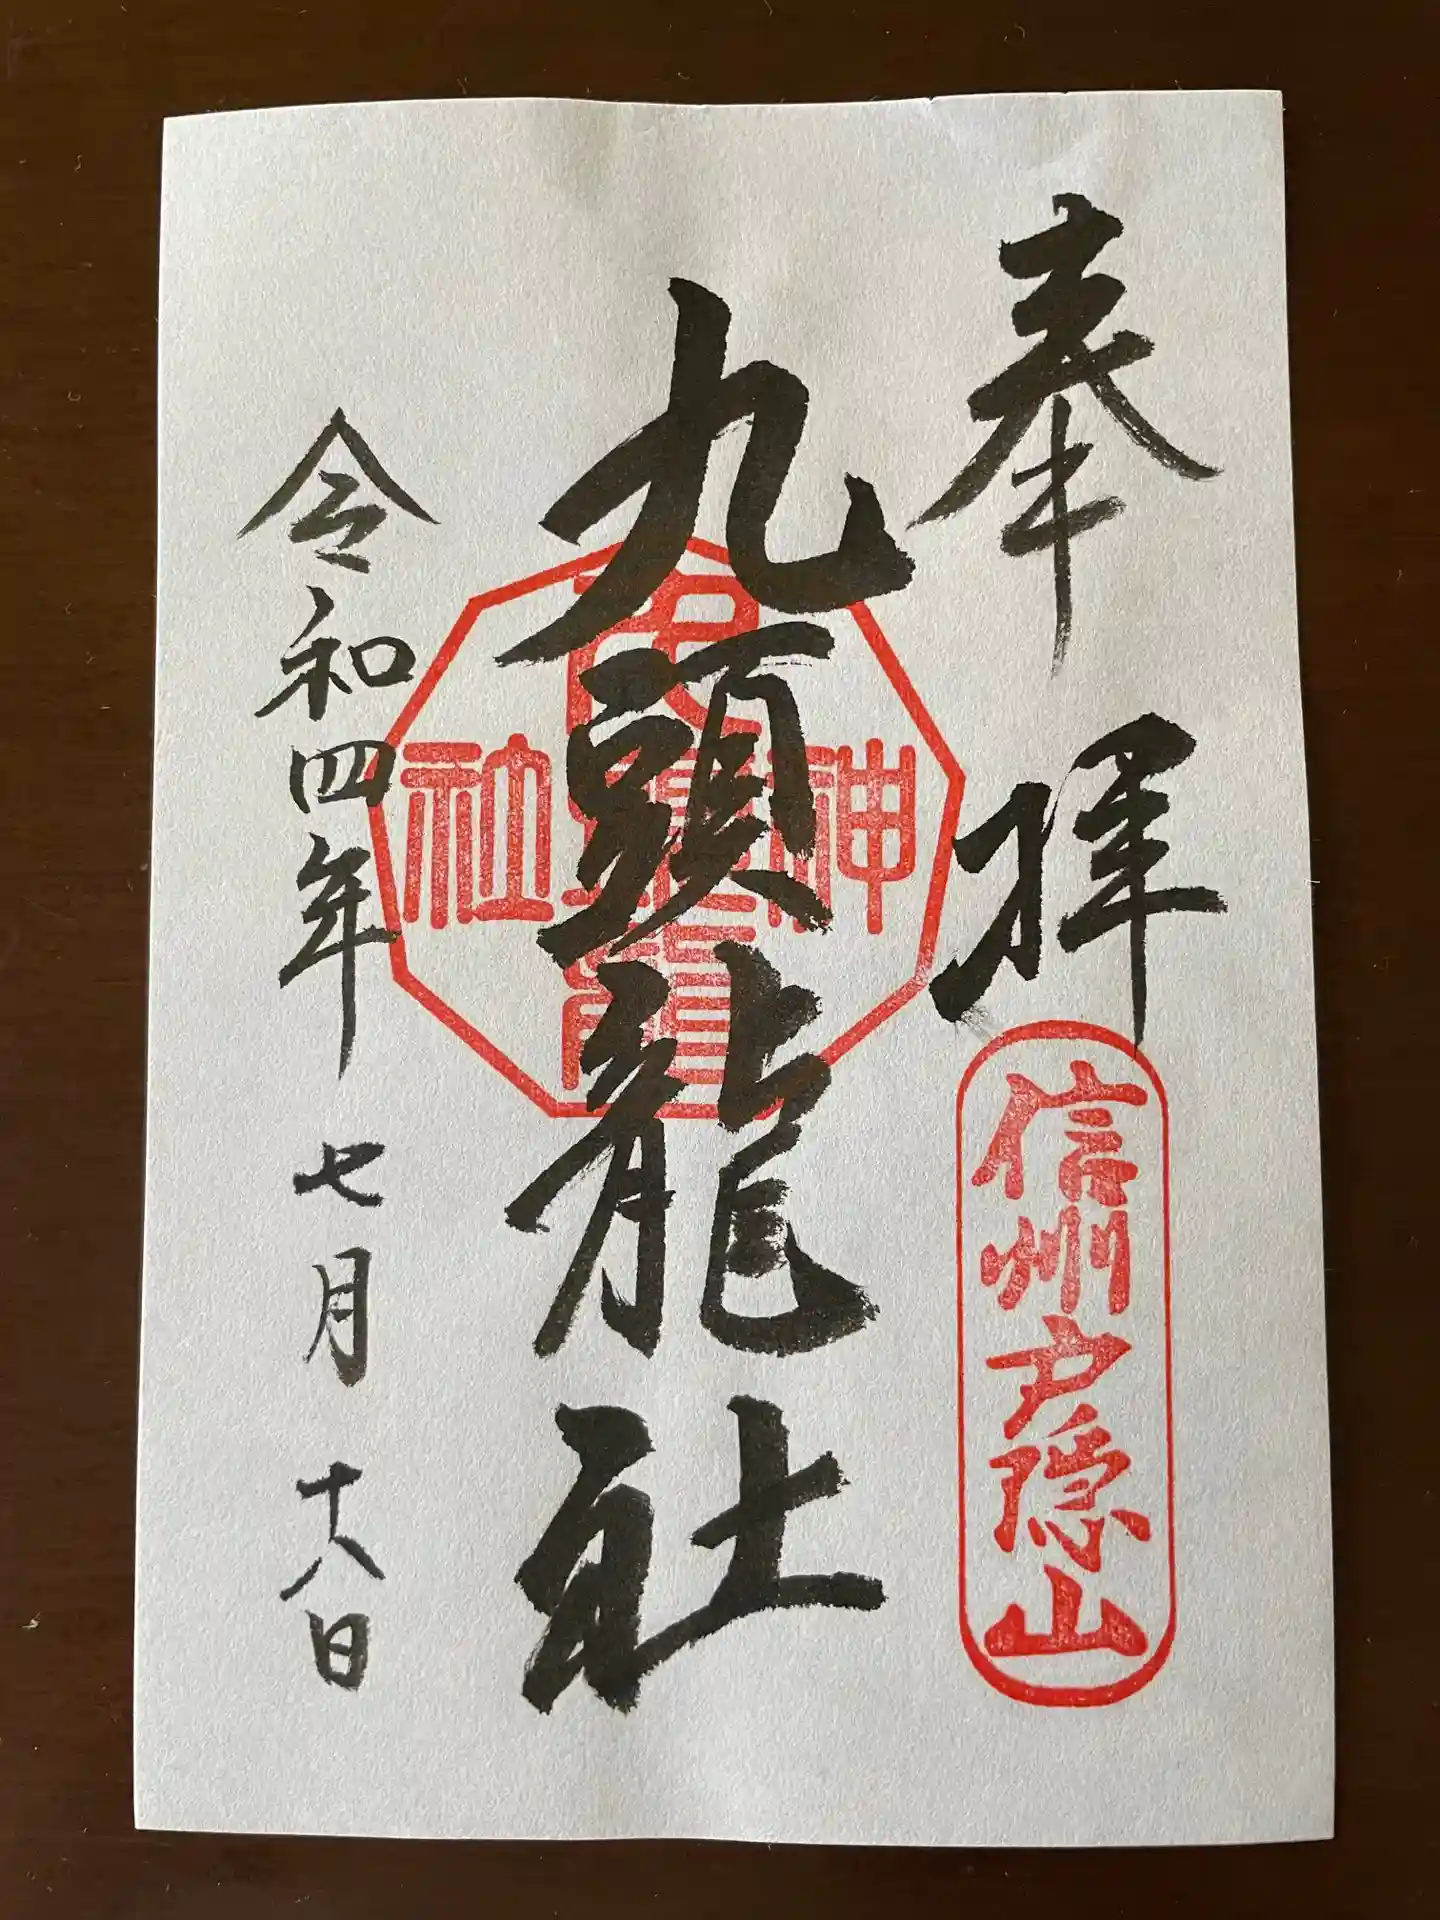 奉拝
信州戸隠山
九頭龍社
神社
令和四年七月十八日